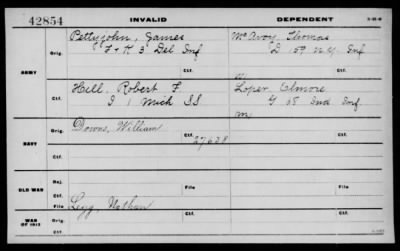 42854 INVALID DEPENDENT
Pettyjohn, James McAvoy Thomas
Orig. F & K 3 Del Inf D 159 N.Y. Inf
ARMY Ctf. m
Hill, Robert F. Loper, Elmore
Ctf. I 1 Mich S.S. G 58 Ind Inf
m
Orig. Downs, William Ctf.
NAVY 27628
Ctf.
Rej. File
OLD WAR
Ctf. File
Legg, Nathan
WAR OF 1812 Orig. Ctf.
Ctf.